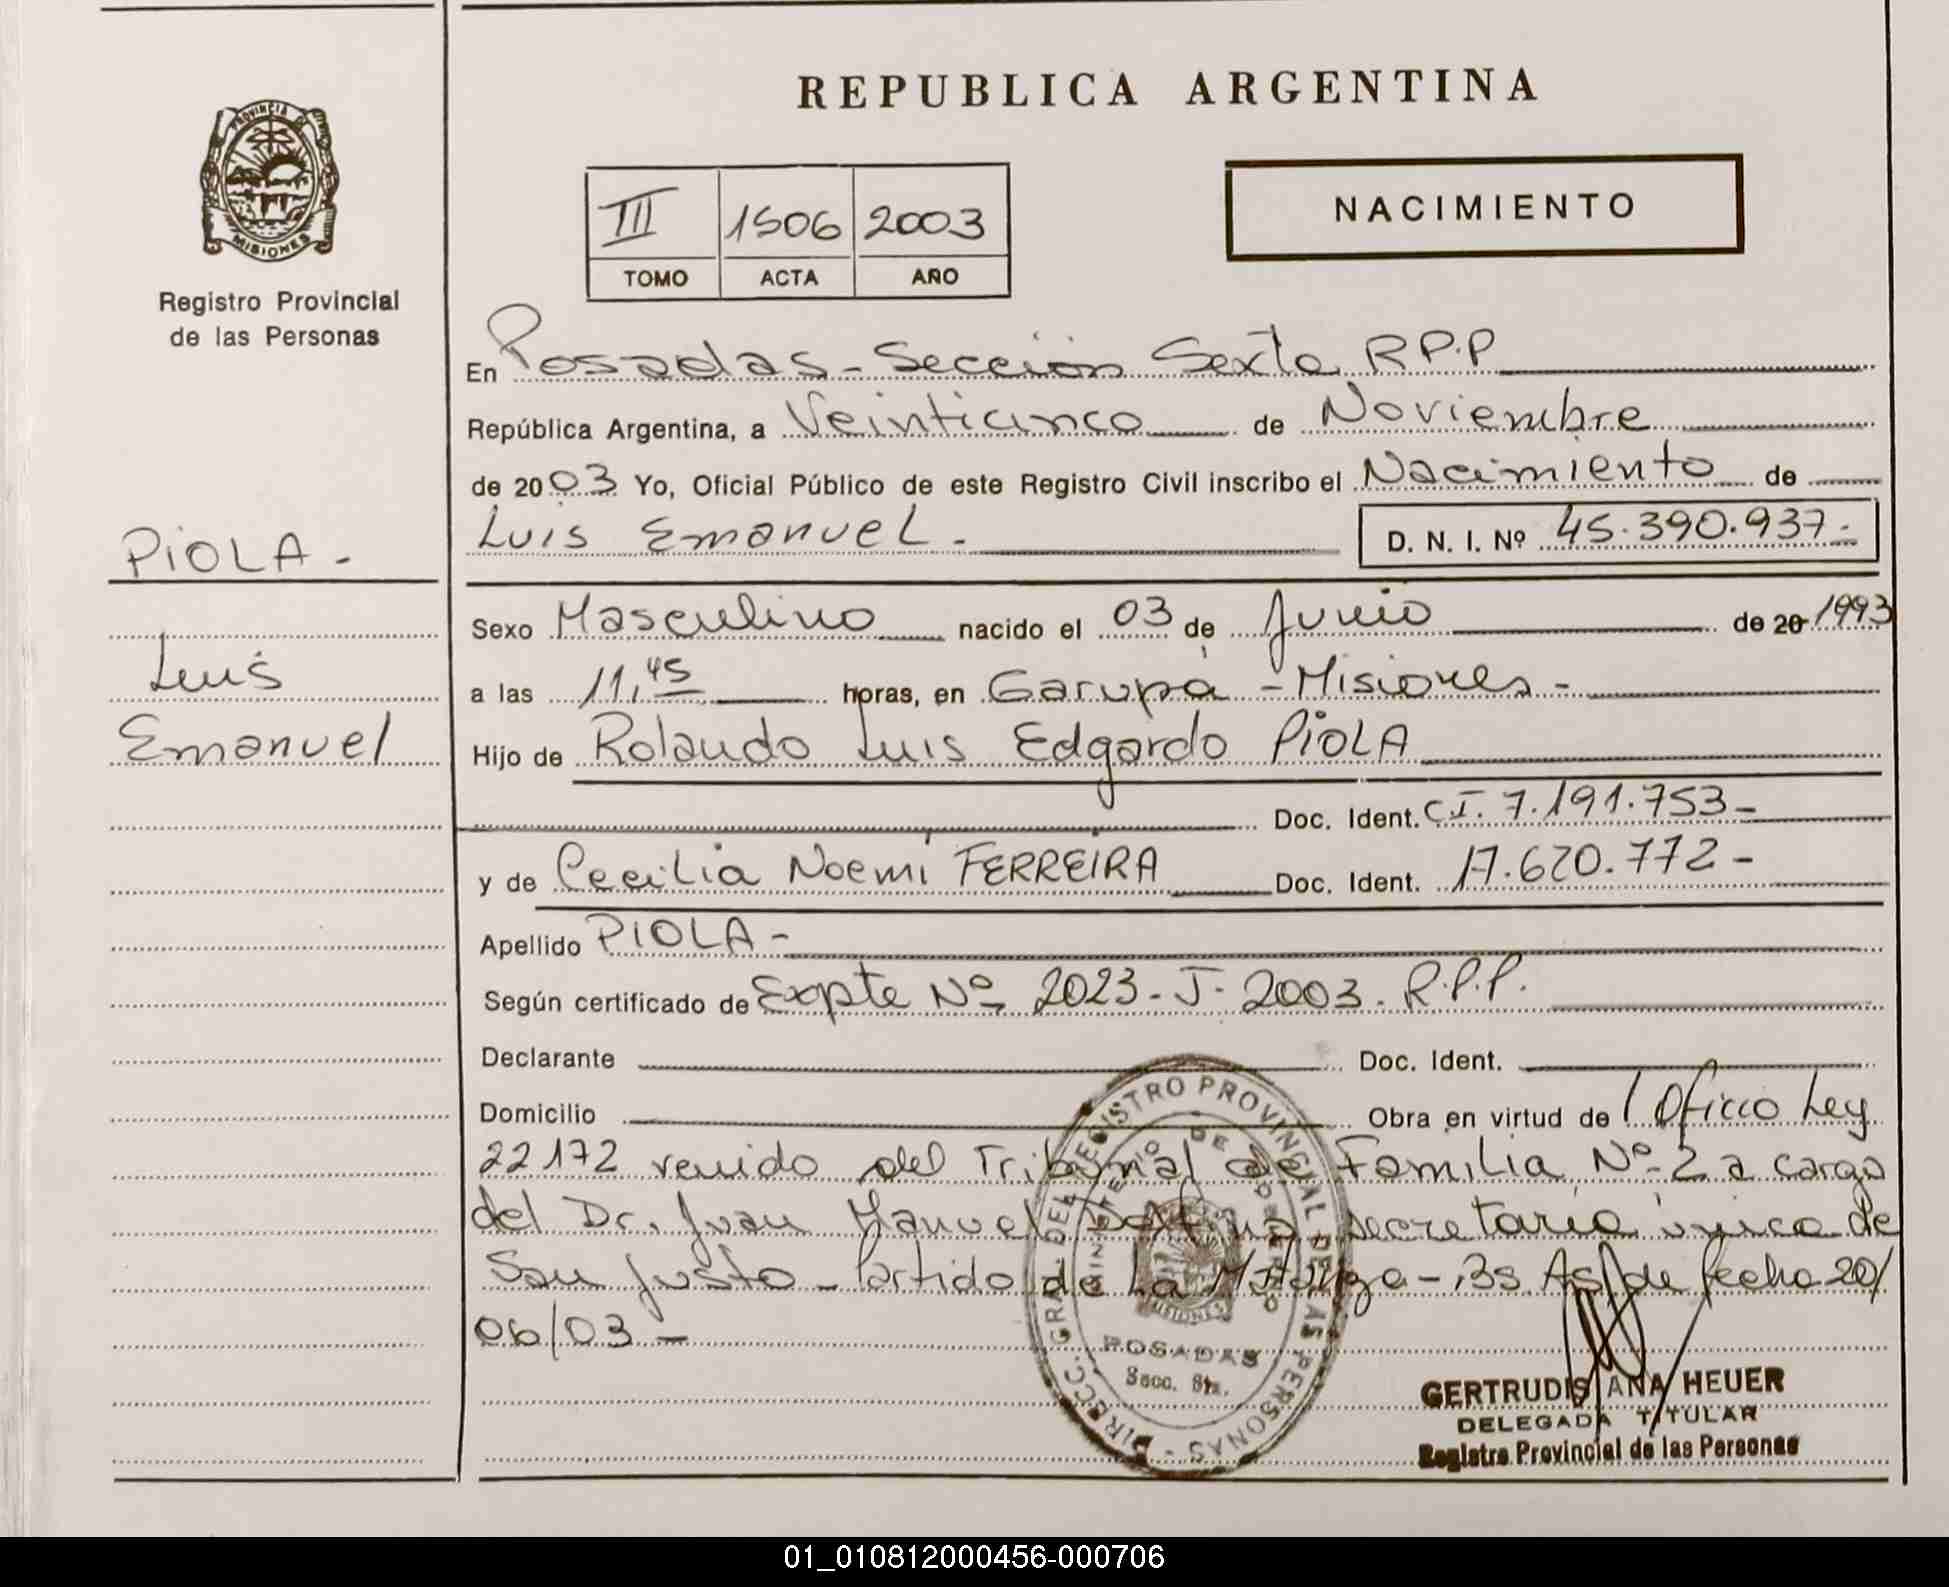 REPUBLICA ARGENTINA
PROVINCIA DE
MISIONES
Registro Provincial
de las Personas
III 1506 2003
TOMO ACTA AÑO
NACIMIENTO
En Posadas - Sección Sexta R.P.P
República Argentina, a Veinticinco de Noviembre
de 2003 Yo, Oficial Público de este Registro Civil inscribo el Nacimiento de
Luis Emanuel. - D. N. I. Nº 45.390.937-
PIOLA -
Luis
Emanuel
Sexo Masculino nacido el 03 de Junio de 20 1993
a las 11,45 horas, en Garupá - Misiones -
Hijo de Rolando Luis Edgardo PIOLA
Doc. Ident. C.I. 7.191.753-
y de Cecilia Noemí FERREIRA Doc. Ident. 17.620.772-
Apellido PIOLA -
Según certificado de Expte Nº 2023-J-2003. R.P.P.
Declarante Doc. Ident.
Domicilio Obra en virtud de Oficio Ley
22172 venido del Tribunal de Familia Nº 2 a cargo
del Dr. Juan Manuel secretaria única de
San Justo - Partido de La Matanza - Bs As/ de fecha 20/
06/03 -
DIRECC. GRAL DEL REGISTRO PROVINCIAL DE LAS PERSONAS -
MINISTERIO DE GOBIERNO
MISIONES
POSADAS
Secc. 6ta.
GERTRUDIS ANA HEUER
DELEGADA TITULAR
Registro Provincial de las Personas
01_010812000456-000706